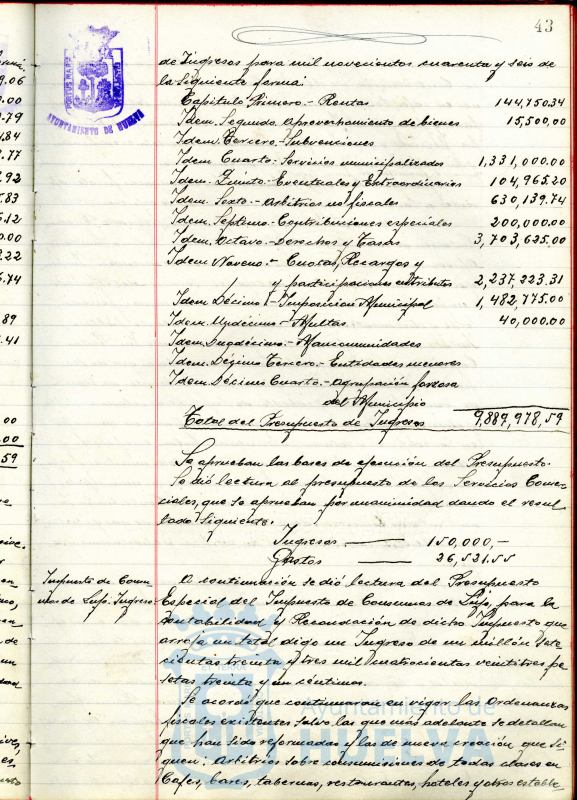 43
AYUNTAMIENTO DE HUELVA
de Ingresos para mil novecientos cuarenta y seis de
la siguiente forma:
Capitulo Primero.- Rentas 144,750.34
Idem. Segundo. Aprovechamiento de bienes 15,500,00
Idem. Tercero.- Subvenciones
Idem Cuarto.- Servicios municipalizados 1,331,000.00
Idem. Quinto.- Eventuales y Extraordinarios 104,965.20
Idem. Sexto.- Arbitrios no fiscales 630,139.74
Idem. Septimo.- Contribuciones especiales 200,000.00
Idem. Octavo.- Derechos y Tasas 3,703,635.00
Idem Noveno.- Cuotas, Recargos y
y participaciones en tributos 2,237,223.31
Idem Décimo.- Imposicion Municipal 1,482,775.00
Idem. Undécimo.- Multas 40,000.00
Idem. Duodécimo.- Mancomunidades
Idem. Décimo Tercero.- Entidades menores
Idem. Décimo Cuarto.- agrupación forzosa
del Municipio
Total del Presupuesto de Ingresos 9,889,978,59
Se aprueban las bases de ejecución del Presupuesto.
Se dió lectura al presupuesto de los Servicios Comer-
ciales, que se aprueban por unanimidad dando el resul-
tado siguiente.
Ingresos 150,000,-
Gastos 26,521.55
Impuesto de Consu-
mos de Lujo. Ingreso
A continuación se dió lectura del Presupuesto
Especial del Impuesto de Consumos de Lujo, para la
contabilidad y Recaudación de dicho Impuesto que
arroja un total digo un Ingreso de un millón sete
cientas treinta y tres mil cuatrocientas veintitres pe
setas treinta y un céntimos.
Se acordó que continuaran en vigor las Ordenanzas
fiscales existentes salvo las que más adelante se detallan
que han sido reformadas y las de nueva creación que si-
guen: Arbitrios sobre consumisiones de todas clases en
Cafes, bares, tabernas, restaurantes, hoteles y otros estable
Ayuntamiento de
HUELVA